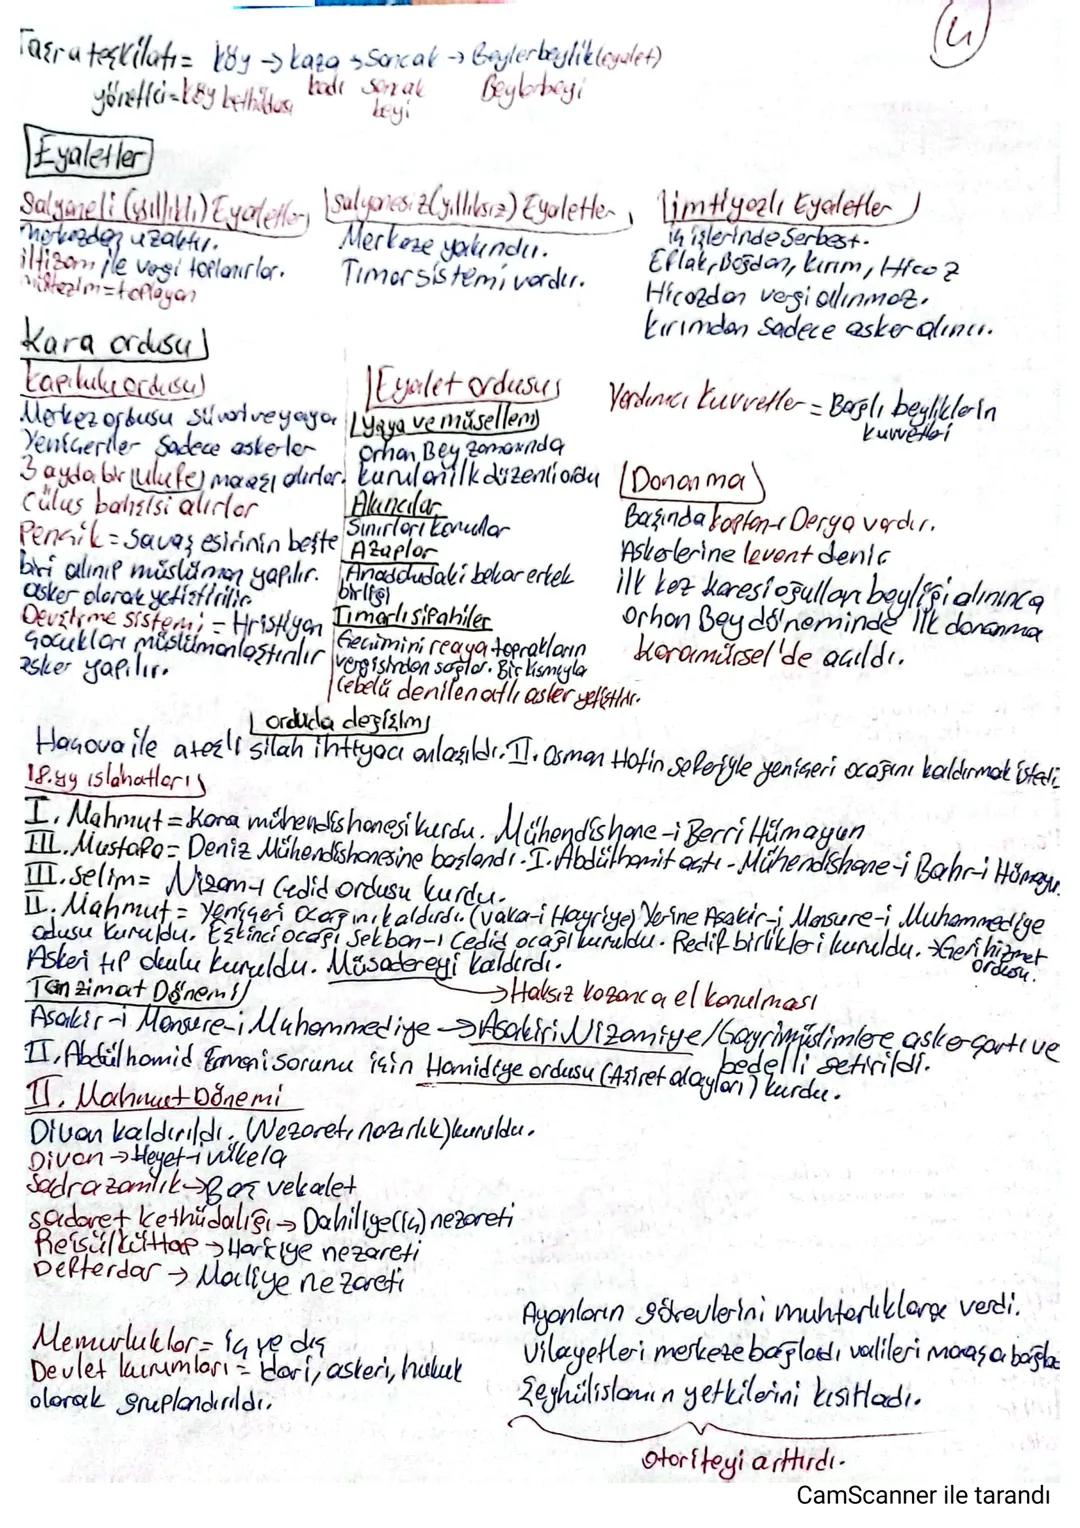 4
Taşra teşkilatı = köy → kaza → Sancak → Beylerbeylik (eyalet)
yönetici = köy kethüdası kadı sancak beyi Beylerbeyi
Eyaletler
Salyaneli (yıllıklı) Eyaletler
merkezden uzaktır.
iltizam ile vergi toplanırlar.
mültezim = toplayan
Salyanesiz (yıllıksız) Eyaletler
Merkeze yakındır.
Tımar sistemi vardır.
İmtiyazlı Eyaletler
iç işlerinde serbest.
Eflak, Boğdan, Kırım, Hicaz
Hicazdan vergi alınmaz.
Kırımdan sadece asker alınır.
Kara ordusu
Kapıkulu ordusu
Merkez ordusu süvari ve yaya
Yeniçeriler sadece askerler
3 ayda bir (ulufe) maaşı alırlar.
Cülus bahşişi alırlar
Pençik = Savaş esirinin beşte
biri alınıp müslüman yapılır.
asker olarak yetiştirilir
Devşirme sistemi = Hristiyan
çocukları müslümanlaştırılır
asker yapılır.
Eyalet ordusu
Yaya ve müsellem
Orhan Bey zamanında
kurulan ilk düzenli ordu
Akıncılar
Sınırları korurlar
Azaplar
Anadoludaki bekar erkek
birliği
Tımarlı sipahiler
Geçimini reaya toprakların
vergisinden sağlar. Bir kısmıyla
Cebelü denilen atlı asker yetiştirir.
Yardımcı kuvvetler = Bağlı beyliklerin
kuvvetleri
Donanma
Başında kaptan-ı Derya vardır.
Askerlerine levent denir
İlk kez karesioğulları beyliği alınınca
Orhan Bey döneminde ilk donanma
karamürsel'de açıldı.
orduda değişim
Haçova ile ateşli silah ihtiyacı anlaşıldı. II. Osman Hotin seferiyle yeniçeri ocağını kaldırmak istedi
18.yy ıslahatları
I. Mahmut = Kara mühendishanesi kurdu. Mühendishane-i Berri Hümayun
III. Mustafa = Deniz Mühendishanesine başlandı. I. Abdülhamit açtı - Mühendishane-i Bahr-i Hümayun
III. Selim = Nizam-ı Cedid ordusu kurdu.
II. Mahmut = Yeniçeri ocağını kaldırdı. (Vaka-i Hayriye) Yerine Asakir-i Mansure-i Muhammediye
odusu kuruldu. Eşkinci ocağı Sekban-ı Cedid ocağı kuruldu. Redif birlikleri kuruldu. → Geri hizmet
ordusu.
Askeri tıp okulu kuruldu. Müsadereyi kaldırdı.
→ Haksız kazanca el konulması
Tanzimat Dönemi
Asakir-i Mansure-i Muhammediye → Asakiri Nizamiye / Gayrimüslimlere asker şartı ve
bedelli getirildi.
II. Abdülhamid Ermeni sorunu için Hamidiye ordusu (Aşiret alayları) kurdu.
II. Mahmut Dönemi
Divan kaldırıldı. (Nezaret, nazırlık) kuruldu.
Divan → Heyet-i vükela
Sadrazamlık → Baş vekalet
sadaret kethüdalığı → Dahiliye (iç) nezareti
Reisülküttap → Hariciye nezareti
Defterdar → Maliye nezareti
Memurluklar = iç ve dış
Devlet kurumları = idari, askeri, hukuk
olarak gruplandırıldı.
Ayanların görevlerini muhtarlıklara verdi.
Vilayetleri merkeze bağladı valileri maaşa bağla
Şeyhülislamın yetkilerini kısıtladı.
otoriteyi arttırdı.
CamScanner ile tarandı